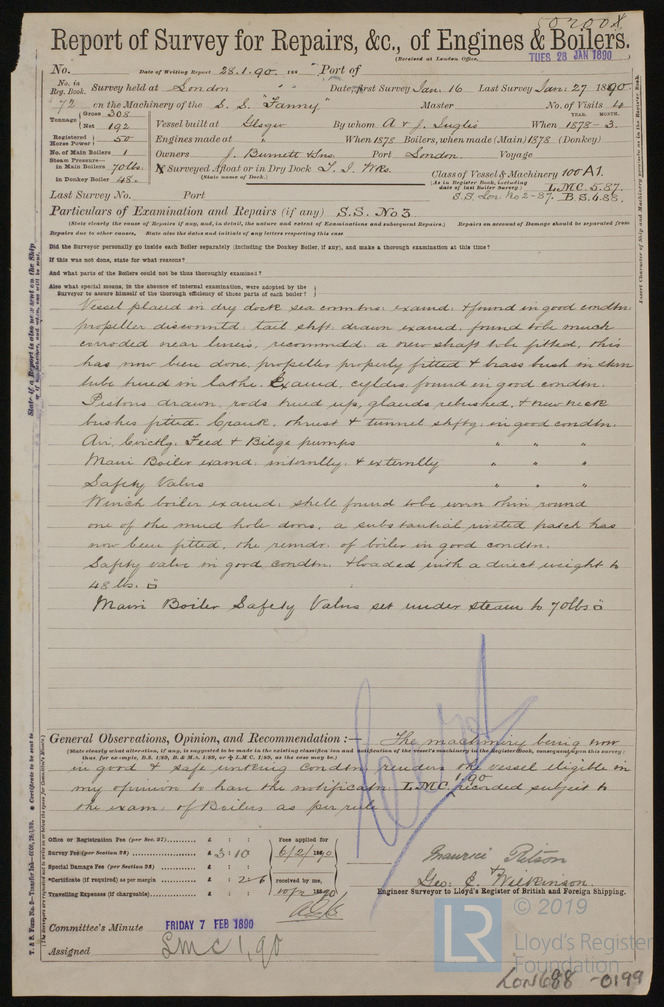 50200
Report of Survey for Repairs, &c., of Engines & Boilers.
(Received at London Office, TUES 28 JAN 1890
No. Date of Writing Report 28.1.90. Port of
No. in Reg. Book. Survey held at London Date, First Survey Jan. 16 Last Survey Jan: 27 1890
72 on the Machinery of the S. S. "Fanny" Master No. of Visits
Tonnage Gross 308 Net 192 Vessel built at Glsgw By whom A & J. Inglis When 1878-3. YEAR. MONTH.
Registered Horse Power 50 Engines made at " When 1878 Boilers, when made (Main) 1878 (Donkey)
No. of Main Boilers 1 Owners J. Burnett & Sns. Port London. Voyage
Steam Pressure— in Main Boilers 70 lbs. in Donkey Boiler 48. Surveyed Afloat or in Dry Dock T. I. Wks. (State name of Dock.)
Class of Vessel & Machinery 100 A1.
(As in Register Book, including date of last Boiler Survey.) L.M.C. 5.87.
S.S. Lon. No 2-87. B.S. 6.88.
Last Survey No. Port
Particulars of Examination and Repairs (if any) S.S. No 3
(State clearly the cause of Repairs (if any, and in detail, the nature and extent of Examinations and subsequent Repairs.) Repairs on account of Damage should be separated from
Repairs due to other causes. State also the dates and initials of any letters respecting this case
Did the Surveyor personally go inside each Boiler separately (including the Donkey Boiler, if any), and make a thorough examination at this time?
If this was not done, state for what reasons?
And what parts of the Boilers could not be thus thoroughly examined?
Also what special means, in the absence of internal examination, were adopted by the
Surveyor to assure himself of the thorough efficiency of those parts of each boiler?
Vessel placed in dry dock sea conntns: examd: & found in good condtn:
propeller disconntd: tail shft: drawn examd, found to be much
corroded near liners, recommdd: a new shaft to be fitted, this
has now been done, propeller properly fitted & brass bush in stern
tube trued in lathe. Examd, cyldrs. found in good condtn.
Pistons drawn, rods trued up, glands rebushed, & new neck
bushes fitted. Crank, thrust & tunnel shftg: in good condtn.
Air, Circltg: Feed & Bilge pumps " " "
Main Boiler examd: internlly: & externlly " " "
Safety Valves " " "
Winch boiler examd: shell found to be worn thin round
one of the mud hole doors, a substantial riveted patch has
now been fitted, the remdr. of boiler in good condtn.
Safety valve in good condtn. & loaded with a direct weight to
48 lbs.
Main Boiler Safety Valves set under steam to 70 lbs
General Observations, Opinion, and Recommendation:— The machinery being now
(State clearly what alteration, if any, is suggested to be made in the existing classification and notification of the vessel's machinery in the Register Book, consequent upon this survey;
thus, for example, B.S. 1/89, B. & M.S. 1/89, or L.M.C. 1/89, as the case may be.)
in good & safe working condtn renders the vessel eligible in
my opinion to have the notificatn: L.M.C. 1.90 recorded subject to
the exam: of Boilers as per rule
Office or Registration Fee (per Sec. 27) £ : :
Survey Fee (per Section 28) £ 3:10 Fees applied for 6/2/1890
Special Damage Fee (per Section 28) £ : :
*Certificate (if required) as per margin £ : 2:6 received by me,
Travelling Expenses (if chargeable) £ : : 10/2 1890
Maurice Pitson
& Geo: E. Wilkinson.
Engineer Surveyor to Lloyd's Register of British and Foreign Shipping.
Committee's Minute FRIDAY 7 FEB 1890
Assigned LMC 1,90
LR © 2019
Lloyd's Register
Foundation
LON688-0199